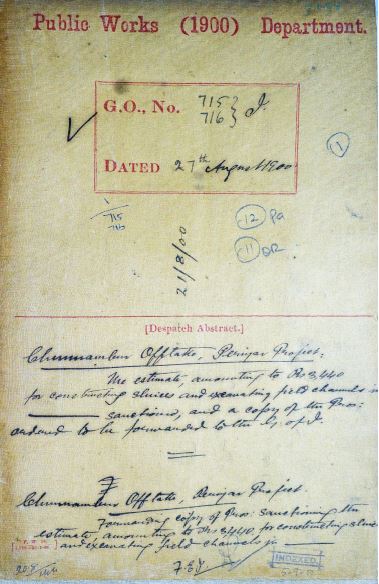 Public Works (1900) Department.
G.O., No. 715 } I.
716
DATED 27th August 1900
1
1/715
716
12 Pa
11 DR
21/8/00
[Despatch Abstract.]
Offtake, Periyar Project:
The estimate amounting to Rs 3,440
for constructing sluices and excavating field channels in
sanctioned, and a copy of the Pro:
ordered to be forwarded to the G. of I.
Offtake, Periyar Project.
Forwarding copy of Pro: sanctioning the
estimate, amounting to Rs 3,440 for constructing sluices
and excavating field channels in
INDEXED